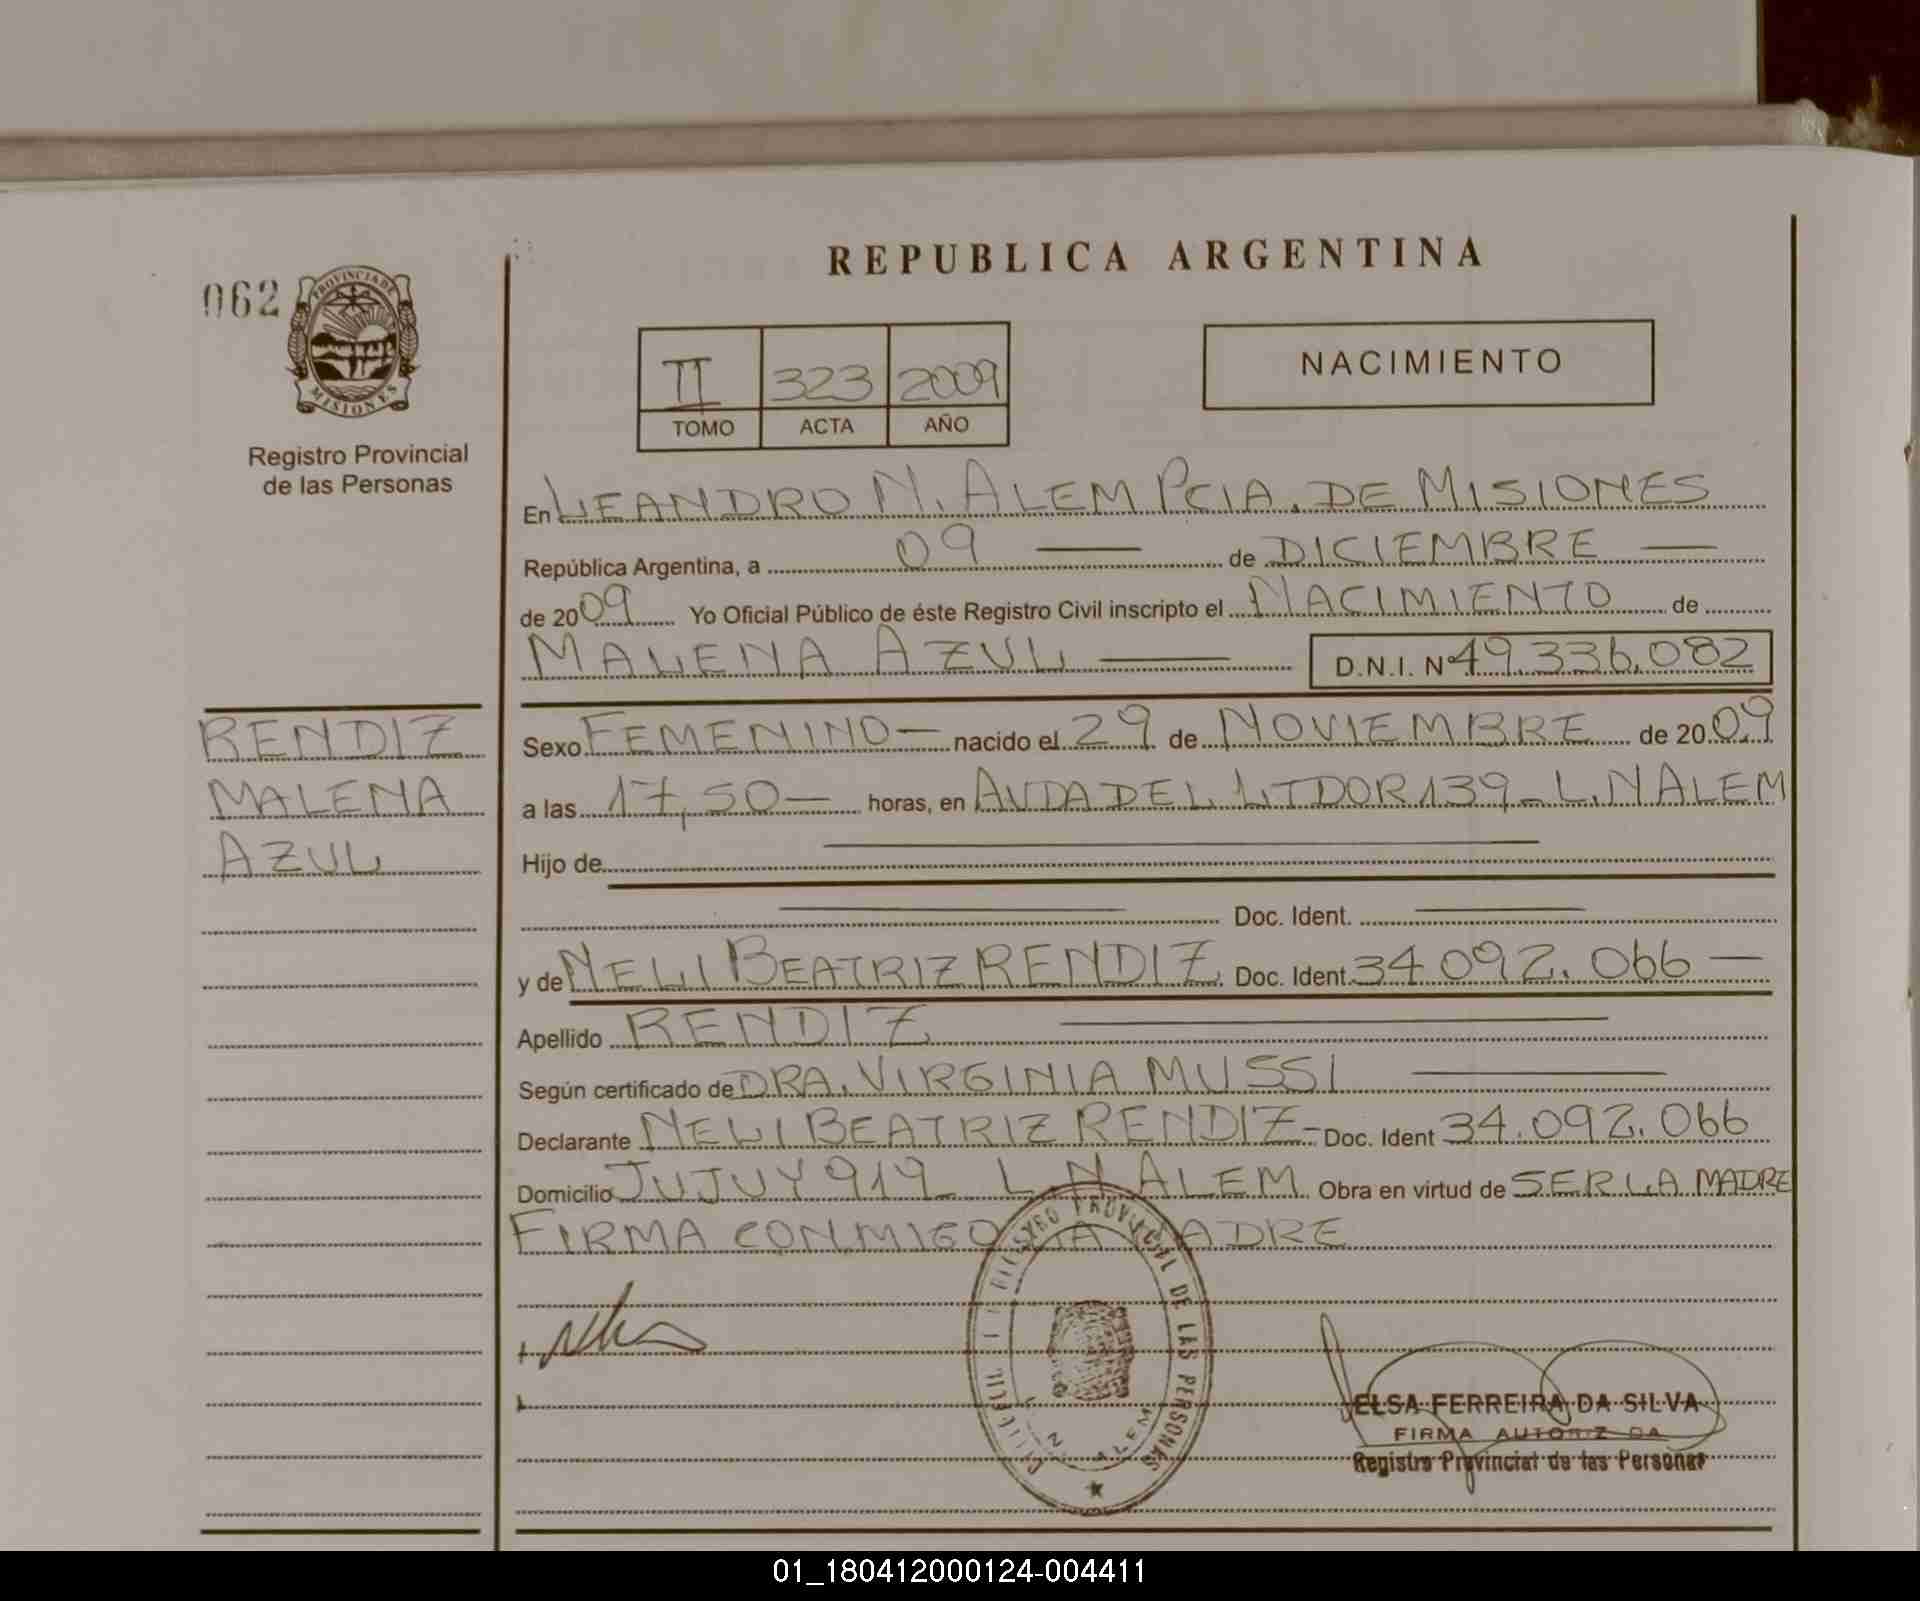 REPUBLICA ARGENTINA
062
PROVINCIA DE
MISIONES
Registro Provincial
de las Personas
II 323 2009
TOMO ACTA AÑO
NACIMIENTO
En LEANDRO N. ALEM PCIA. DE MISIONES
República Argentina, a 09 — de DICIEMBRE —
de 2009 Yo Oficial Público de éste Registro Civil inscripto el NACIMIENTO de
MALENA AZUL — D.N.I. Nº 49.336.082
RENDIZ
MALENA
AZUL
Sexo FEMENINO — nacido el 29 de NOVIEMBRE de 2009
a las 17,50 — horas, en AVDA DEL LTDOR 139 - L.N ALEM
Hijo de
Doc. Ident.
y de NELI BEATRIZ RENDIZ Doc. Ident. 34.092.066 —
Apellido RENDIZ
Según certificado de DRA. VIRGINIA MUSSI
Declarante NELI BEATRIZ RENDIZ - Doc. Ident 34.092.066
Domicilio JUJUY 919 L.N ALEM Obra en virtud de SER LA MADRE
FIRMA CONMIGO LA MADRE
REGISTRO PROVINCIAL DE LAS PERSONAS
L. N. ALEM
ELSA FERREIRA DA SILVA
FIRMA AUTORIZADA
Registro Provincial de las Personas
01_180412000124-004411